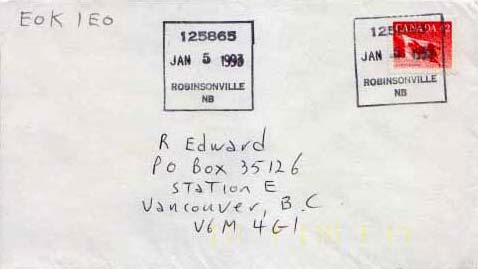 E0K 1E0
125865
JAN 5 1993
ROBINSONVILLE
NB
CANADA 42
JAN 5
ROBINSONVILLE
NB
R Edward
PO Box 35126
STATION E
Vancouver, B.C
V6M 4G1